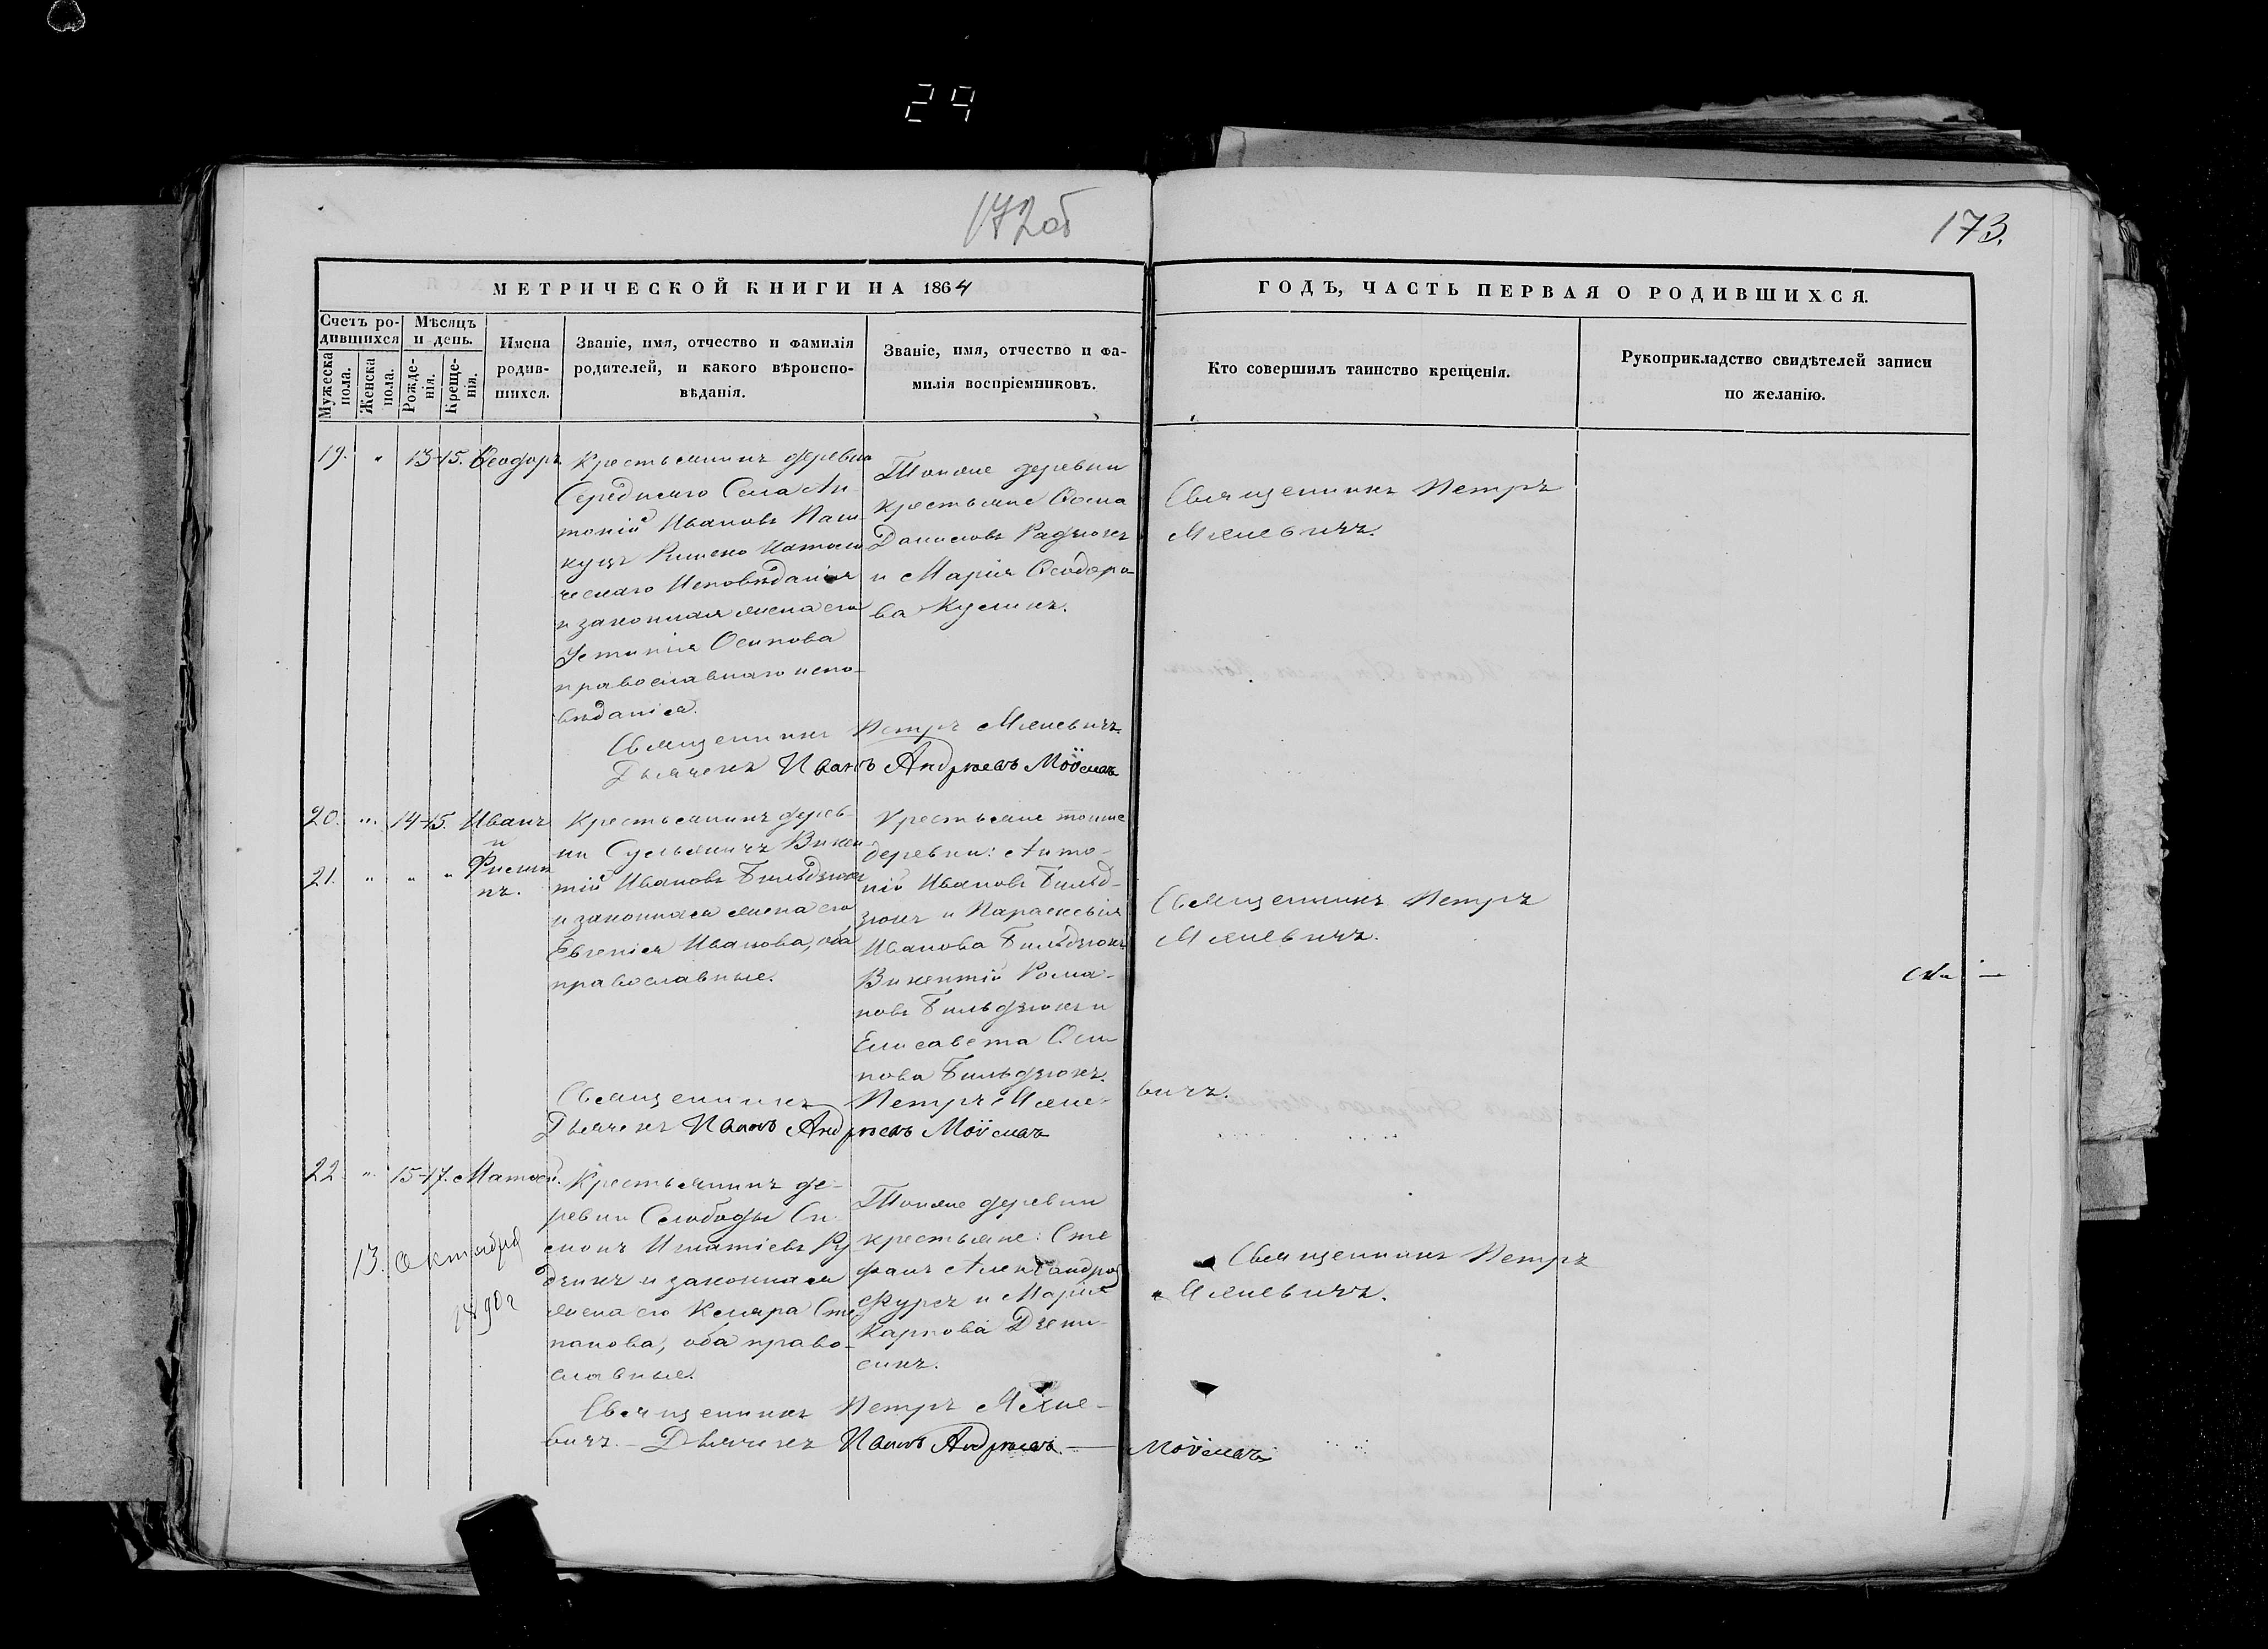 24
172об
173.
МЕТРИЧЕСКОЙ КНИГИ НА 1864
ГОДЪ, ЧАСТЬ ПЕРВАЯ О РОДИВШИХСЯ.
Счетъ ро-
дившихся
Мужеска
пола.
Женска
пола.
Мѣсяцъ
и день.
Рожде-
нія.
Креще-
нія.
Имена
родив-
шихся.
Званіе, имя, отчество и фамилія
родителей, и какого вѣроиспо-
вѣданія.
Званіе, имя, отчество и фа-
милія воспріемниковъ.
Кто совершилъ таинство крещенія.
Рукоприкладство свидѣтелей записи
по желанію.
19. " 13 15. Ѳеодоръ
Крестьянинъ деревни
Середняго Села Ан-
тоній Ивановъ
Римско Католи
ческаго Исповѣданія
и законная жена его
Устинія Осипова
православнаго испо-
вѣданія.
Тойже деревни
крестьяне Ѳома
Даниловъ Радзюкъ
и Марія Ѳеодоро-
ва
Священникъ Петръ
Мяневичъ.
Священникъ Петръ Мяневичъ.
Дьячекъ Иванъ Андреевъ
20. " 14 15. Иванъ
и
21. " " "
Крестьянинъ дерев-
ни Викен
тій Ивановъ Бильдзюкъ
и законная жена его
Евгенія Иванова, оба
православные.
Крестьяне тойже
деревни: Анто-
ній Ивановъ Бильд-
зюкъ и Параскевія
Иванова Бильдзюкъ
Викентій Рома-
новъ Бильдзюкъ и
Елисавета Оси
пова Бильдзюкъ.
Священникъ Петръ
Мяневичъ.
Священникъ Петръ Мяне-
вичъ.
Дьячекъ Иванъ Андреевъ
22. " 15 17. Матвей.
Крестьянинъ де-
ревни Слободы Си
монъ Игнатіевъ Ру
дзикъ и законная
жена его Клара Сте
панова, оба право-
славные.
Тойже деревни
крестьяне: Сте
фанъ Александровъ
и Марія
Карпова
Священникъ Петръ
Мяневичъ.
13. Октября
1890 г
Священникъ Петръ Мяне-
вичъ. – Дьячекъ Иванъ Андреевъ. —